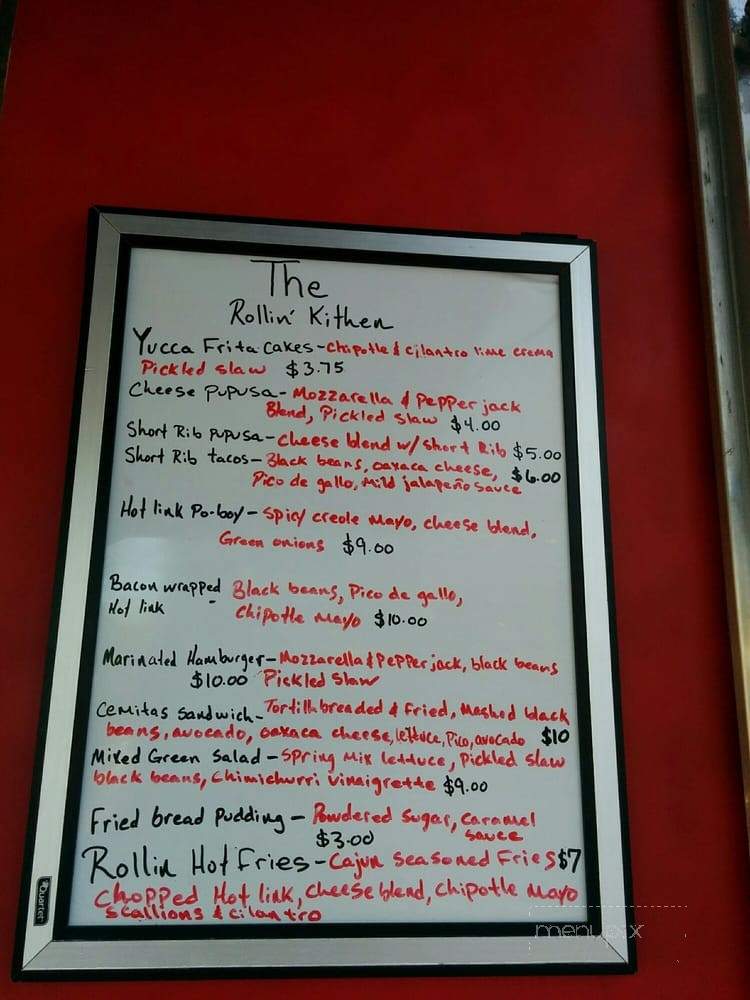 The
Rollin' Kithen
Yucca Frita Cakes - Chipotle & Cilantro lime crema
Pickled slaw $3.75
Cheese Pupusa - Mozzarella & Pepper jack
Blend, Pickled slaw $4.00
Short Rib Pupusa - Cheese blend w/ short Rib $5.00
Short Rib tacos - Black beans, oaxaca cheese, $6.00
Pico de gallo, Mild jalapeño sauce
Hot link Po-boy - Spicy creole Mayo, cheese blend,
Green onions $9.00
Bacon wrapped Black beans, Pico de gallo,
Hot link - Chipotle Mayo $10.00
Marinated Hamburger - Mozzarella & Pepper jack, black beans
$10.00 Pickled Slaw
Cemitas Sandwich - Tortilla breaded & Fried, Mashed black
beans, avocado, oaxaca cheese, lettuce, Pico, avocado $10
Mixed Green Salad - Spring Mix lettuce, Pickled slaw
black beans, Chimichurri vinaigrette $9.00
Fried bread Pudding - Powdered Sugar, Caramel
$3.00 Sauce
Rollin Hot Fries - Cajun Seasoned Fries $7
Chopped Hot link, Cheese blend, Chipotle Mayo
Scallions & cilantro
Quartet
menupix